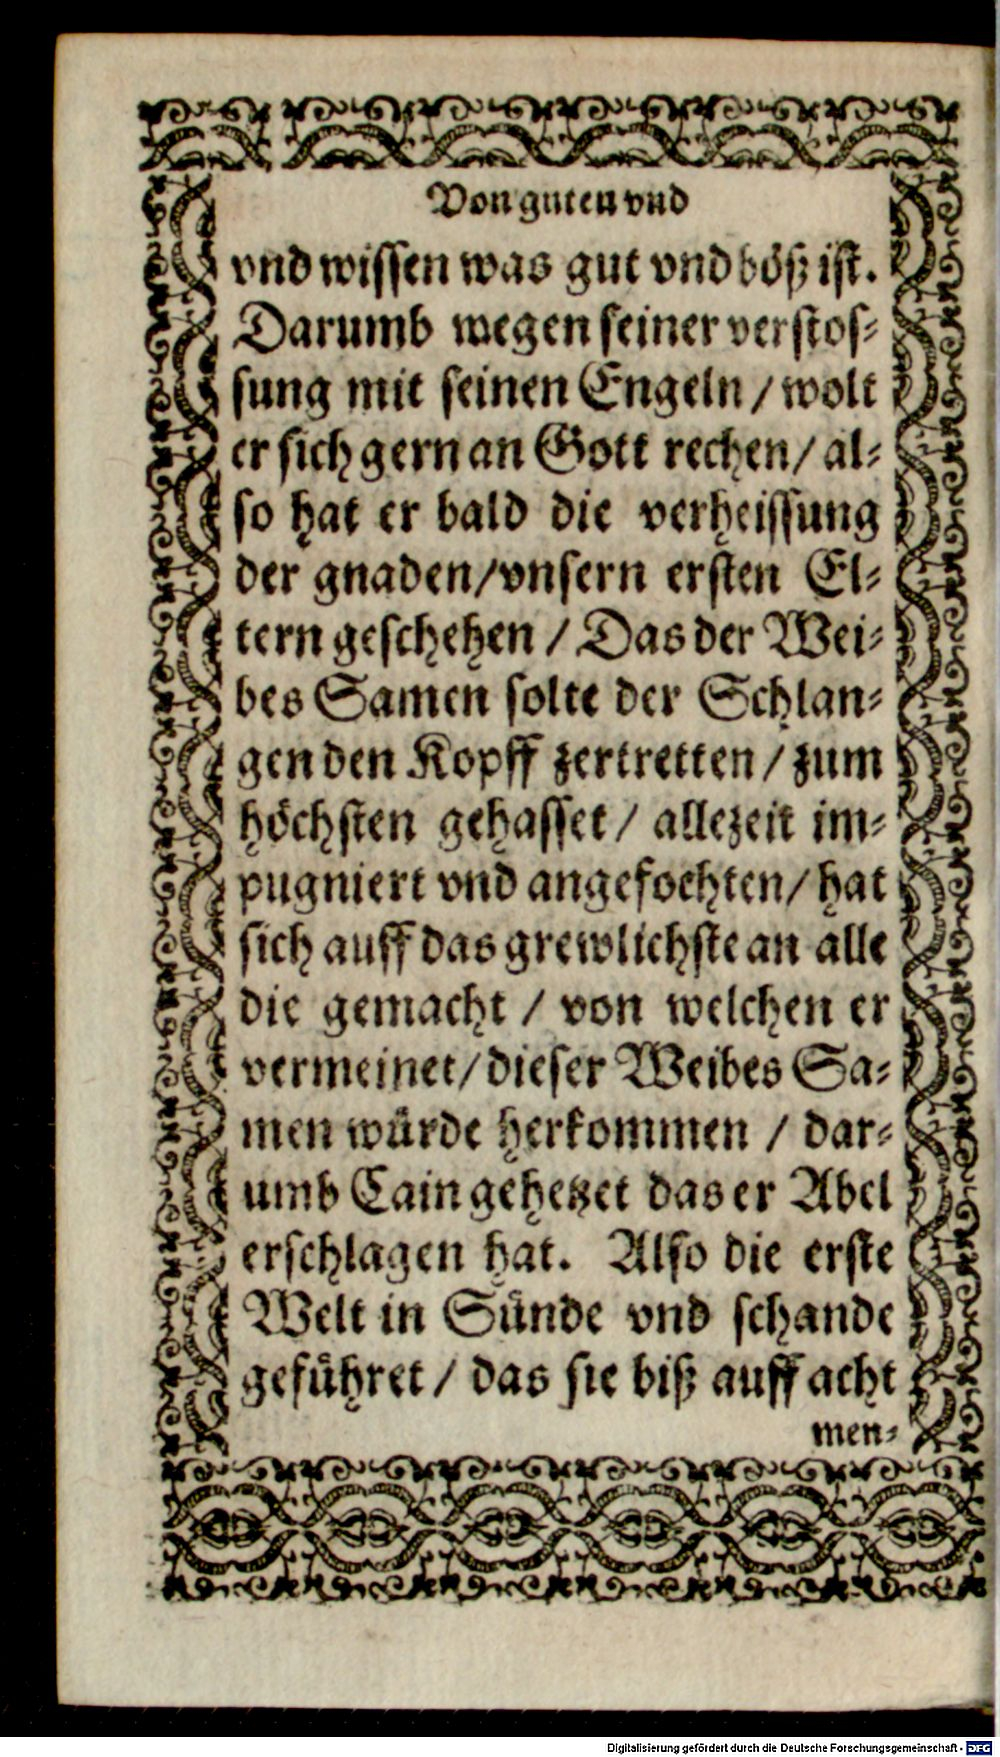 Von guten vnd
vnd wissen was gut vnd böß ist.
Darumb wegen seiner verstos-
sung mit seinen Engeln / wolt
er sich gern an Gott rechen / al-
so hat er bald die verheissung
der gnaden / vnsern ersten El-
tern geschehen / Das der Wei-
bes Samen solte der Schlan-
gen den Kopff zertretten / zum
höchsten gehasset / allezeit im-
pugniert vnd angefochten / hat
sich auff das grewlichste an alle
die gemacht / von welchen er
vermeinet / dieser Weibes Sa-
men würde herkommen / dar-
umb Cain gehetzet das er Abel
erschlagen hat. Also die erste
Welt in Sünde vnd schande
geführet / das sie biß auff acht
men-
Digitalisierung gefördert durch die Deutsche Forschungsgemeinschaft - DFG